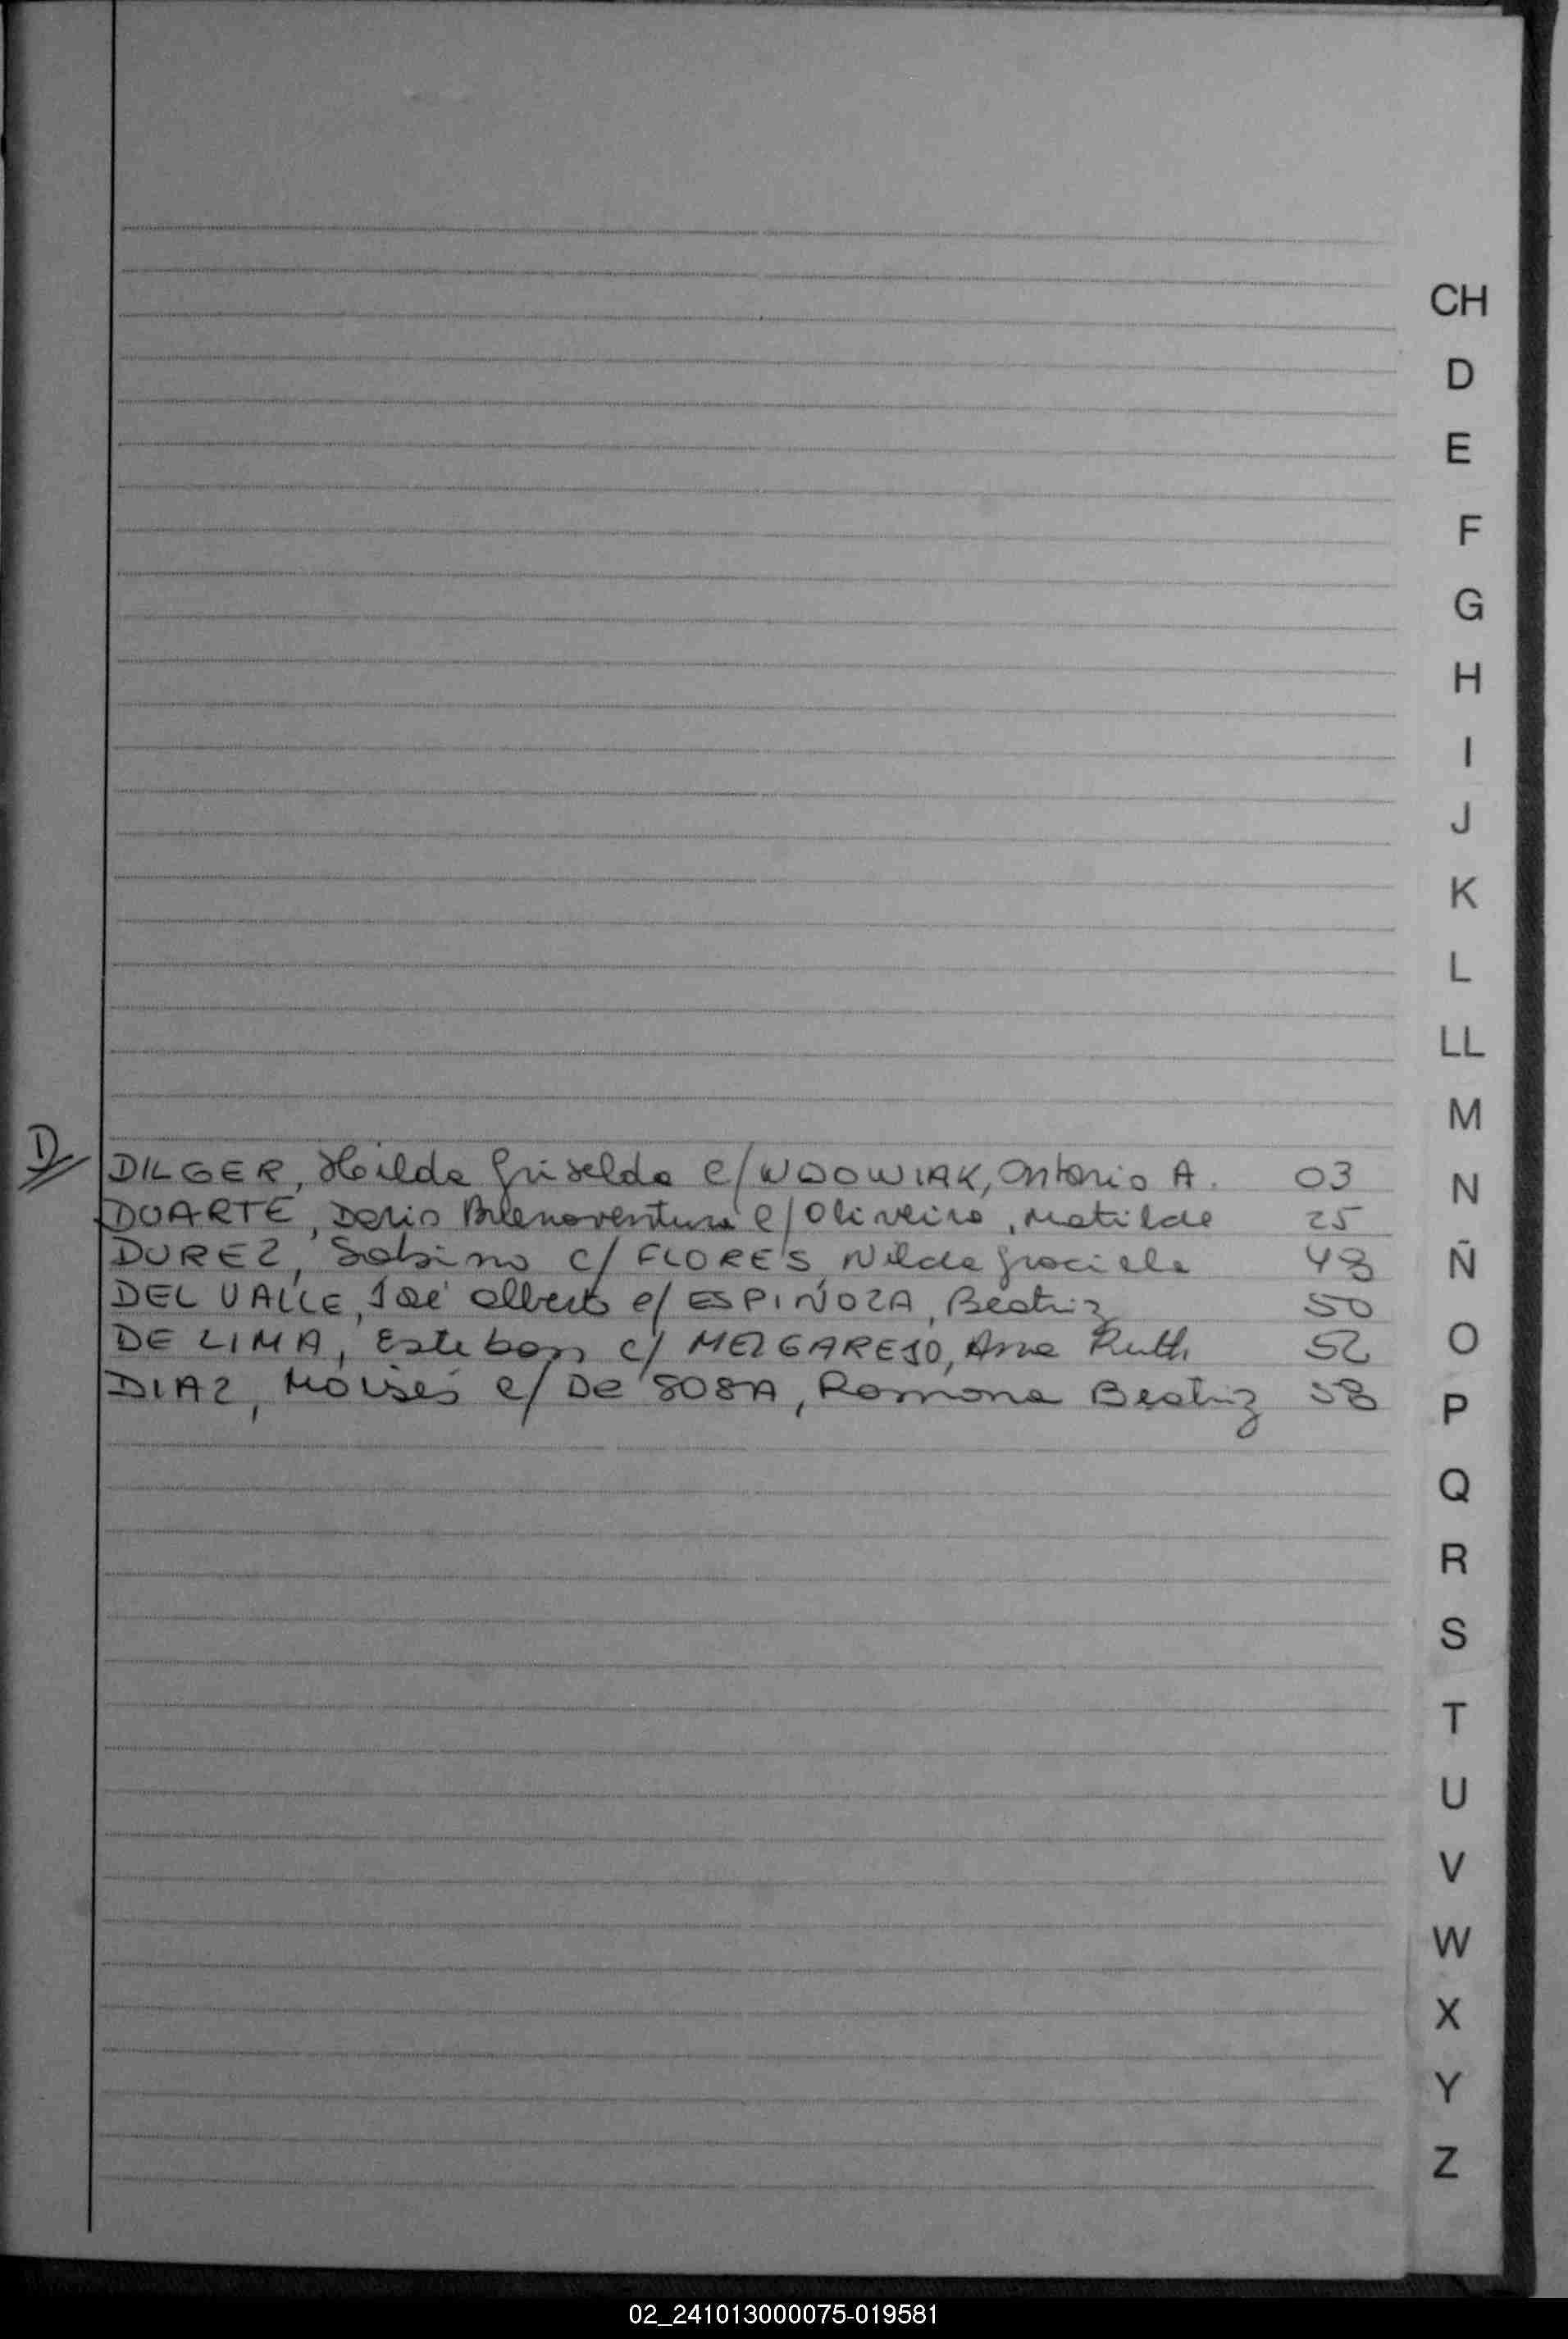 CH
D
E
F
G
H
I
J
K
L
LL
M
N
Ñ
O
P
Q
R
S
T
U
V
W
X
Y
Z
D//
DILGER, Hilda Griselda c/ WDOWIAK, Antonio A. 03
DUARTE, Dario Buenaventura c/ Oliveira, Matilde 25
DUREZ, Sabino c/ FLORES, Nilda Graciela 48
DEL VALLE, José Alberto c/ ESPIÑOZA, Beatriz 50
DE LIMA, Esteban c/ MELGAREJO, Ana Ruth 52
DIAZ, Moisés c/ De SOSA, Ramona Beatriz 58
02_241013000075-019581